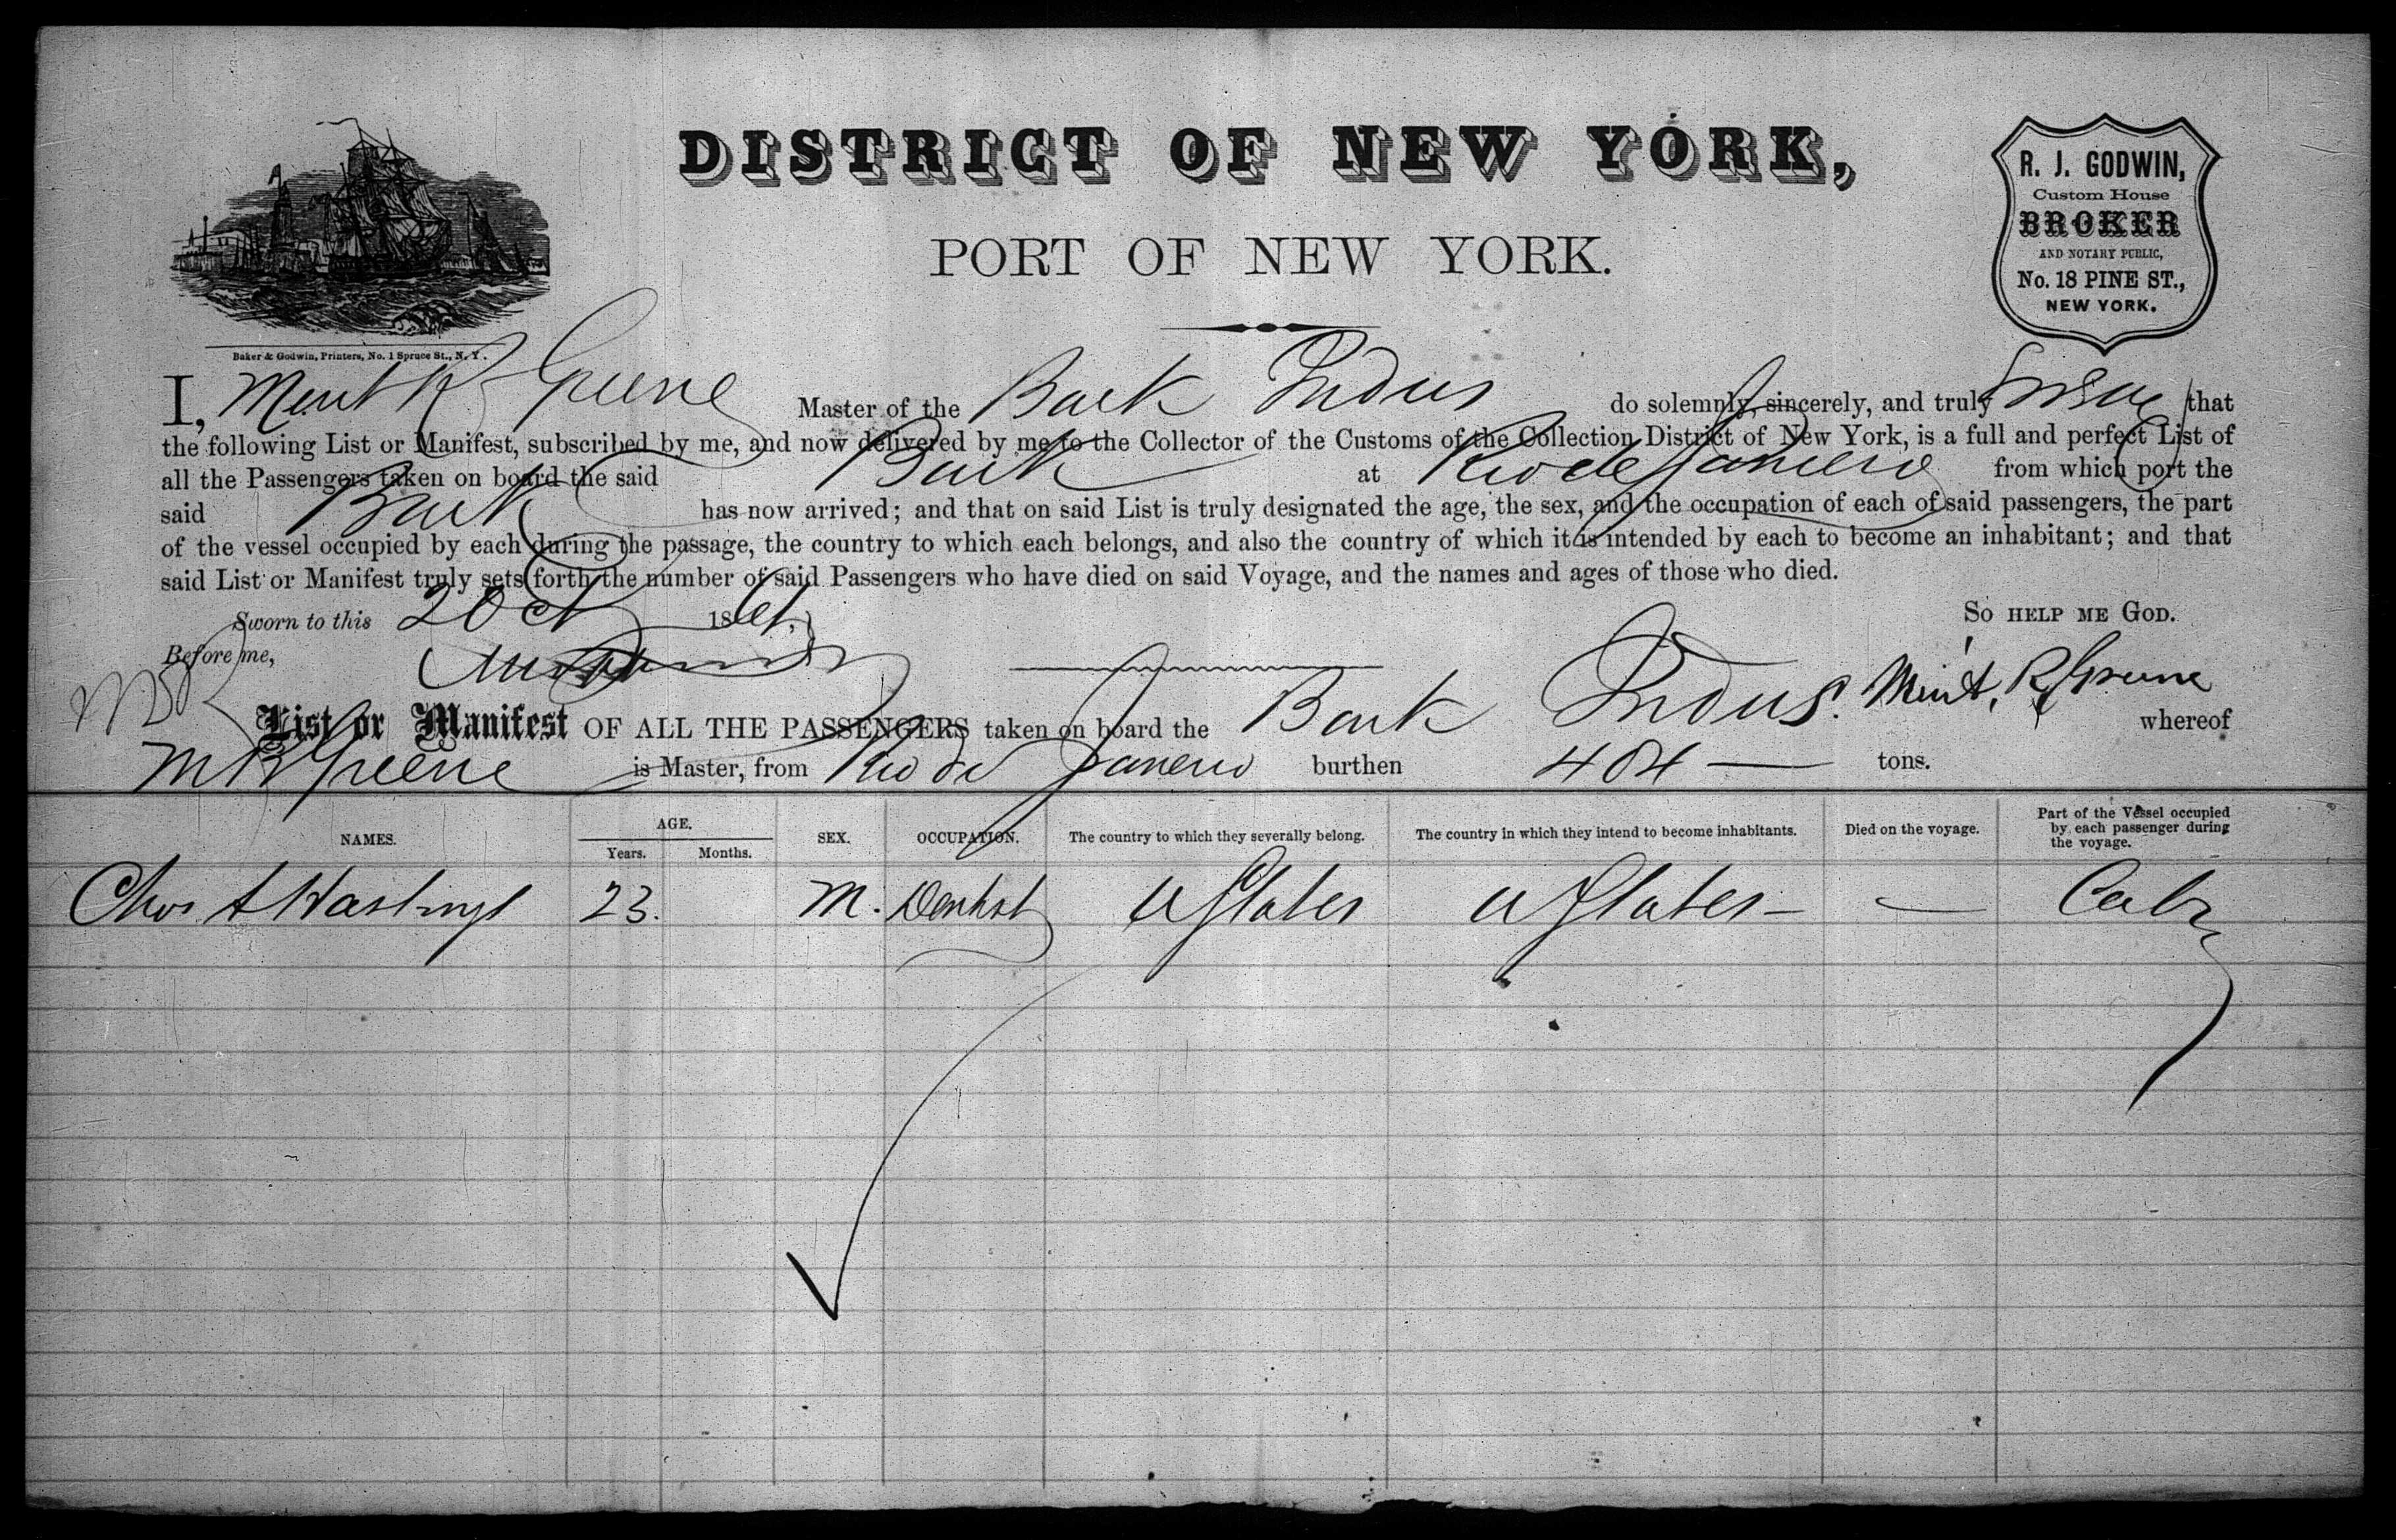 DISTRICT OF NEW YORK,
PORT OF NEW YORK.
R. J. GODWIN,
Custom House
BROKER
AND NOTARY PUBLIC,
No. 18 PINE ST.,
NEW YORK.
Baker & Godwin, Printers, No. 1 Spruce St., N. Y.
I, R Greene Master of the Bark Indus do solemnly, sincerely, and truly Swear that
the following List or Manifest, subscribed by me, and now delivered by me to the Collector of the Customs of the Collection District of New York, is a full and perfect List of
all the Passengers taken on board the said Bark at Rio de Janeiro from which port the
said Bark has now arrived; and that on said List is truly designated the age, the sex, and the occupation of each of said passengers, the part
of the vessel occupied by each during the passage, the country to which each belongs, and also the country of which it is intended by each to become an inhabitant; and that
said List or Manifest truly sets forth the number of said Passengers who have died on said Voyage, and the names and ages of those who died.
Sworn to this 2 Oct 1861. So HELP ME GOD.
Before me, R Greene
List or Manifest OF ALL THE PASSENGERS taken on board the Bark Indus. whereof
M R Greene is Master, from Rio de Janeiro burthen 404 — tons.
NAMES. AGE. Years. Months. SEX. OCCUPATION. The country to which they severally belong. The country in which they intend to become inhabitants. Died on the voyage. Part of the Vessel occupied by each passenger during the voyage.
Chas A Hastings 23. M. Dentist U States U States — — Cabin